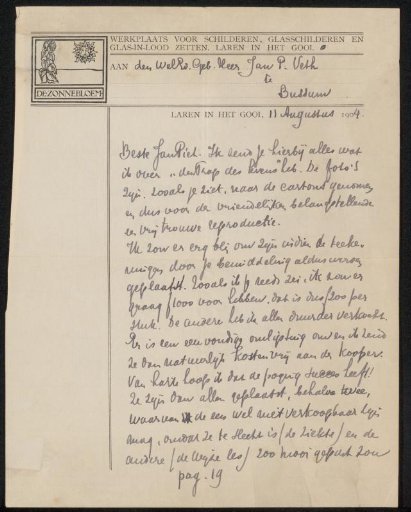 WERKPLAATS VOOR SCHILDEREN, GLASSCHILDEREN EN
GLAS-IN-LOOD ZETTEN. LAREN IN HET GOOI.
DE ZONNEBLOEM
AAN den WelEd. Geb. Heer Jan P. Veth
te
Bussum
LAREN IN HET GOOI, 11 Augustus 1904.
Beste Jan Piet. Ik zend je hierbij alles wat
ik over "den Trap des levens" heb. De foto's
zijn, zooals je ziet, naar de cartons genomen
en dus voor de vriendelijken belangstellende
een vrij trouwe reproductie.
Ik zou er erg blij om zijn indien de teeke-
ningen door je bemiddeling aldus worden
geplaatst. Zooals ik je reeds zei, ik zou er
graag f 1000 voor hebben, dat is dus f 200 per
stuk. De andere heb ik allen duurder verkocht.
Er is een eenvoudige omlijsting om en ik zend
ze dan natuurlijk kostenvrij aan de kooper.
Van harte hoop ik dat de poging succes heeft!
Ze zijn dan allen geplaatst, behalve twee,
waarvan de een wel niet verkoopbaar zijn
mag, omdat ze te slecht is (de Ziekte) en de
andere (de wijze les) zoo mooi gepast zou
pag. 19